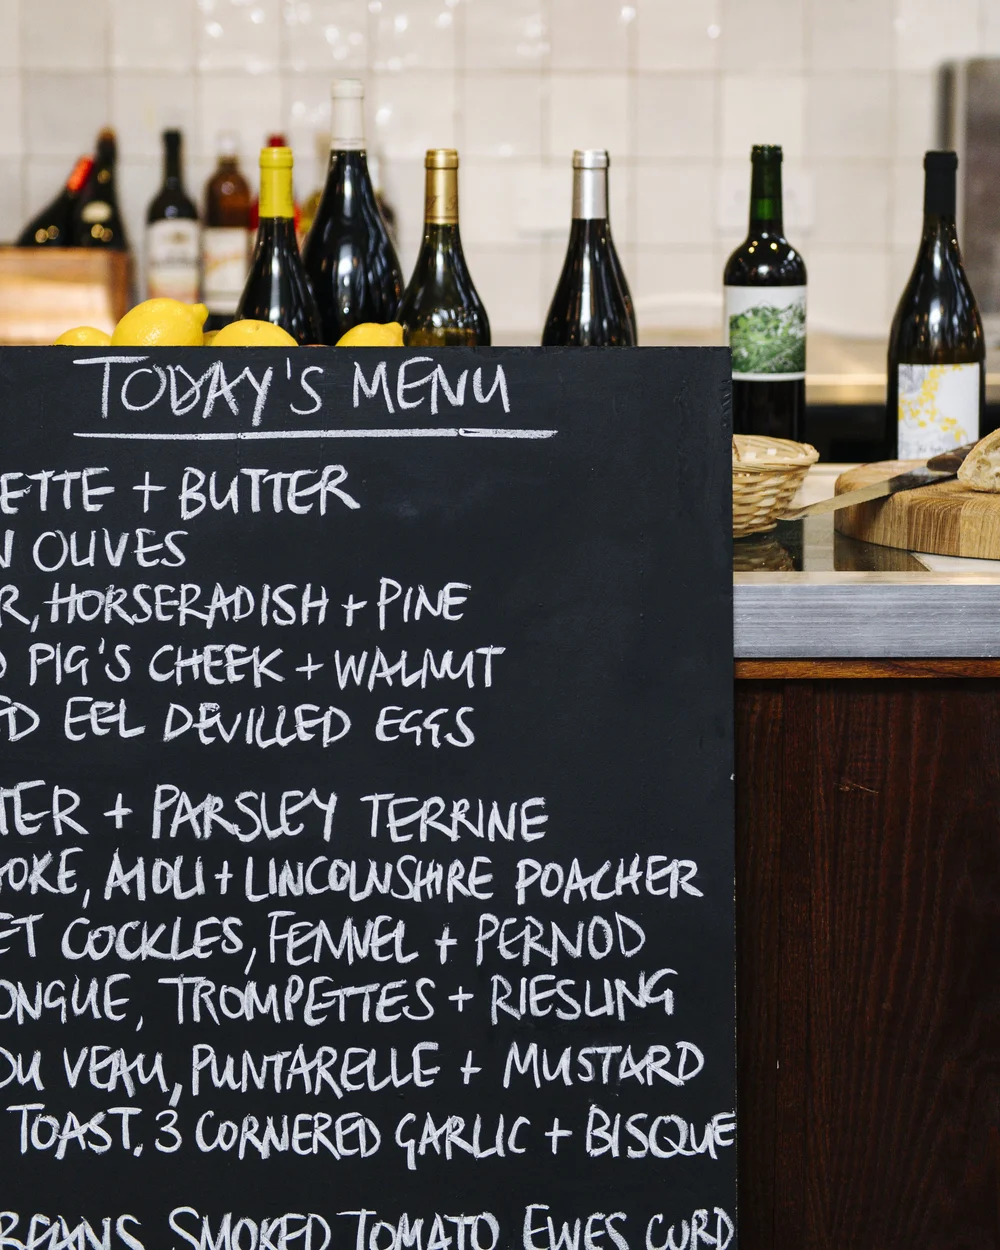 TODAY'S MENU
ETTE + BUTTER
N OLIVES
R, HORSERADISH + PINE
D PIG'S CHEEK + WALNUT
ED EEL DEVILLED EGGS
TER + PARSLEY TERRINE
OKE, AIOLI + LINCOLNSHIRE POACHER
ET COCKLES, FENNEL + PERNOD
ONGUE, TROMPETTES + RIESLING
DU VEAU, PUNTARELLE + MUSTARD
TOAST. 3 CORNERED GARLIC + BISQUE
BEANS SMOKED TOMATO EWES CURD